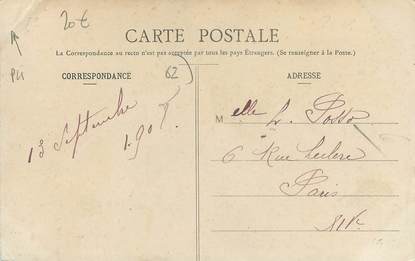 20€
CARTE POSTALE
La Correspondance au recto n'est pas acceptée par tous les pays Étrangers. (Se renseigner à la Poste.)
CORRESPONDANCE
62
ADRESSE
13 Septembre
Melle L. Posso
6 Rue Leclerc
Paris